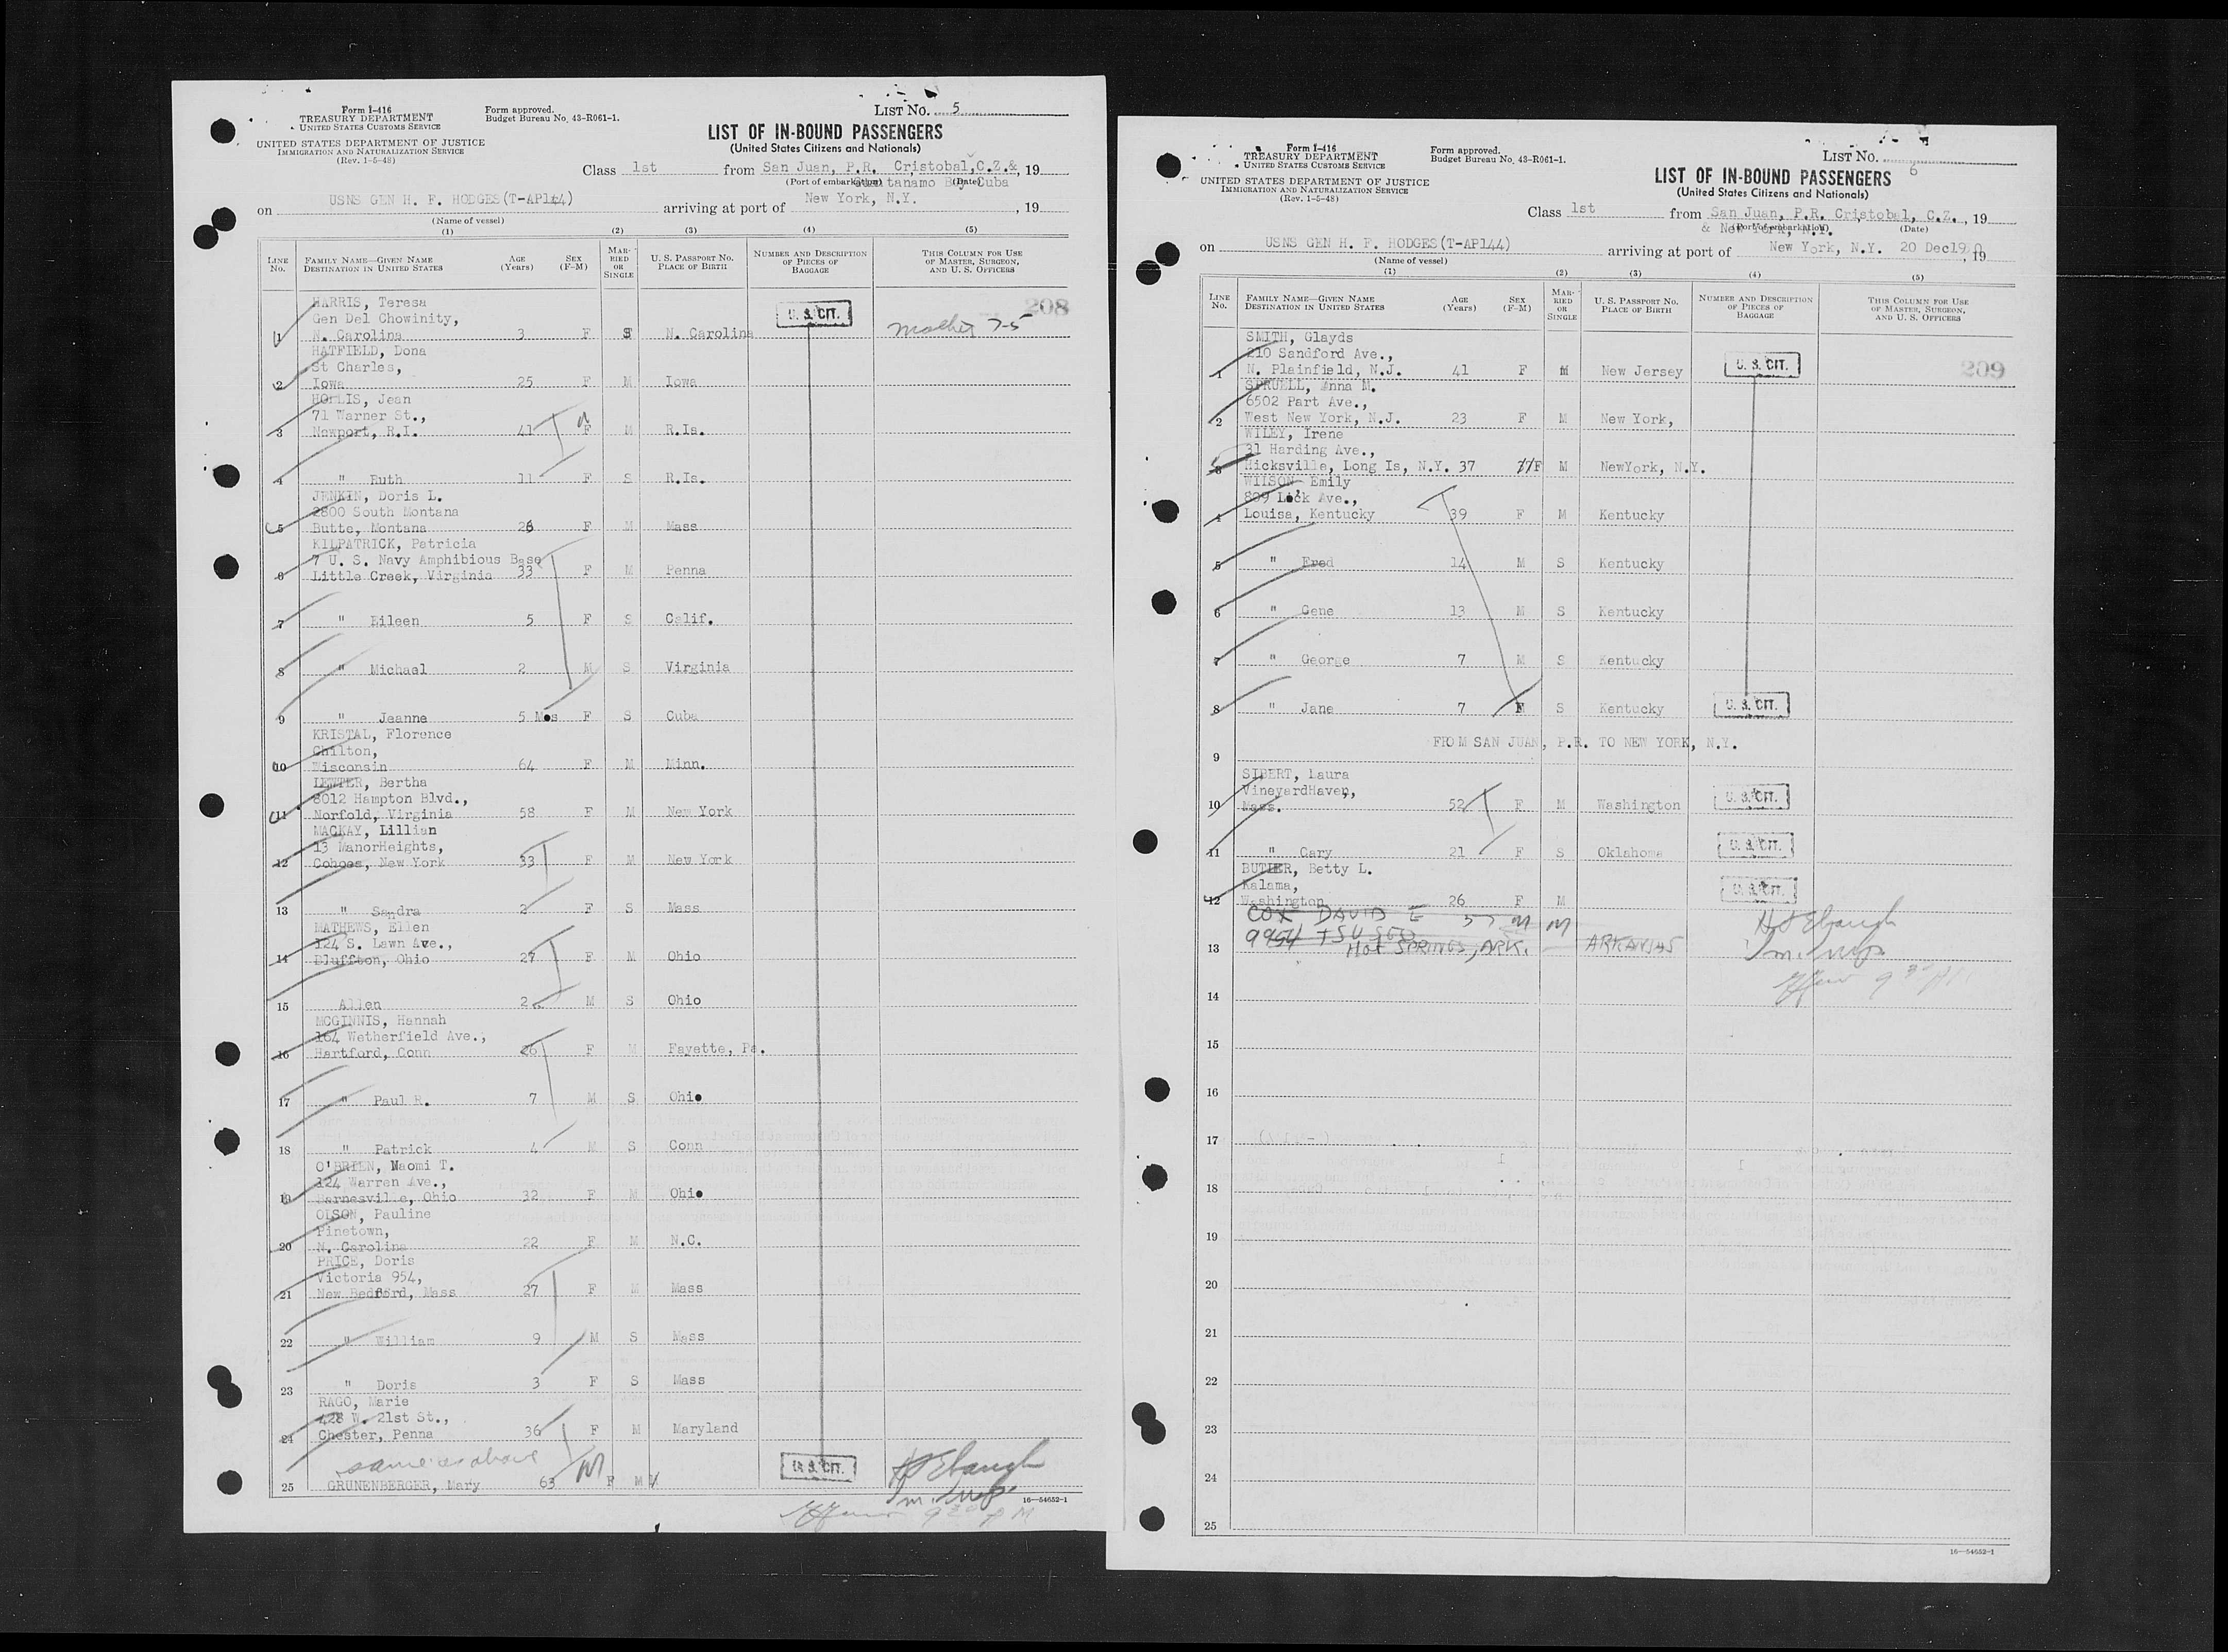 Form I-416
TREASURY DEPARTMENT
UNITED STATES CUSTOMS SERVICE
UNITED STATES DEPARTMENT OF JUSTICE
IMMIGRATION AND NATURALIZATION SERVICE
(Rev. 1-5-48)
Form approved.
Budget Bureau No. 43-R061-1.
LIST NO. 5
LIST OF IN-BOUND PASSENGERS
(United States Citizens and Nationals)
Class 1st from San Juan, P.R. Cristobal, C.Z.& , 19
(Port of embarkation) Guantanamo Bay Cuba (Date)
on USNS GEN H. F. HODGES(T-AP144) arriving at port of New York, N.Y. , 19
(Name of vessel)
(1) (2) (3) (4) (5)
LINE NO. FAMILY NAME—GIVEN NAME DESTINATION IN UNITED STATES AGE (Years) SEX (F-M) MARRIED OR SINGLE U. S. PASSPORT NO. PLACE OF BIRTH NUMBER AND DESCRIPTION OF PIECES OF BAGGAGE THIS COLUMN FOR USE OF MASTER, SURGEON, AND U. S. OFFICERS
208
HARRIS, Teresa
Gen Del Chowinity,
1 N. Carolina 3 F S N. Carolina U. S. CIT. mother 7-5
HATFIELD, Dona
St Charles,
2 Iowa 25 F M Iowa
HOLLIS, Jean
71 Warner St.,
3 Newport, R.I. 41 F M R.Is.
4 " Ruth 11 F S R.Is.
JENKIN, Doris L.
2800 South Montana
5 Butte, Montana 26 F M Mass
KILPATRICK, Patricia
7 U. S. Navy Amphibious Base
6 Little Creek, Virginia 33 F M Penna
7 " Eileen 5 F S Calif.
8 " Michael 2 M S Virginia
9 " Jeanne 5 Mos F S Cuba
KRISTAL, Florence
Chilton,
10 Wisconsin 64 F M Minn.
LEWTER, Bertha
8012 Hampton Blvd.,
11 Norfold, Virginia 58 F M New York
MACKAY, Lillian
13 ManorHeights,
12 Cohoes, New York 33 F M New York
13 " Sandra 2 F S Mass
MATHEWS, Ellen
124 S. Lawn Ave.,
14 Bluffton, Ohio 27 F M Ohio
15 Allen 2 M S Ohio
MCGINNIS, Hannah
164 Wetherfield Ave.,
16 Hartford, Conn 26 F M Fayette, Pa.
17 " Paul R. 7 M S Ohio
18 " Patrick 4 M S Conn
O'BRIEN, Naomi T.
124 Warren Ave.,
19 Barnesville, Ohio 32 F M Ohio
OLSON, Pauline
Pinetown,
20 N. Carolina 22 F M N.C.
PRICE, Doris
Victoria 954,
21 New Bedford, Mass 27 F M Mass
22 " William 9 M S Mass
23 " Doris 3 F S Mass
RAGO, Marie
428 W. 21st St.,
24 Chester, Penna 36 F M Maryland
same as above
25 GRUNENBERGER, Mary 63 F M U. S. CIT. H Ebaugh
16—54652-1
930 AM
Form I-416
TREASURY DEPARTMENT
UNITED STATES CUSTOMS SERVICE
UNITED STATES DEPARTMENT OF JUSTICE
IMMIGRATION AND NATURALIZATION SERVICE
(Rev. 1-5-48)
Form approved.
Budget Bureau No. 43-R061-1.
LIST NO.
6
LIST OF IN-BOUND PASSENGERS
(United States Citizens and Nationals)
Class 1st from San Juan, P.R. Cristobal, C.Z. , 19
& New York, N.Y. (Port of embarkation) (Date)
on USNS GEN H. F. HODGES(T-AP144) arriving at port of New York, N.Y. 20 Dec1950, 19
(Name of vessel)
(1) (2) (3) (4) (5)
LINE NO. FAMILY NAME—GIVEN NAME DESTINATION IN UNITED STATES AGE (Years) SEX (F-M) MARRIED OR SINGLE U. S. PASSPORT NO. PLACE OF BIRTH NUMBER AND DESCRIPTION OF PIECES OF BAGGAGE THIS COLUMN FOR USE OF MASTER, SURGEON, AND U. S. OFFICERS
SMITH, Glayds
210 Sandford Ave.,
1 N. Plainfield, N.J. 41 F M New Jersey U. S. CIT. 209
SPRUELL, Anna M.
6502 Part Ave.,
2 West New York, N.J. 23 F M New York,
WILEY, Irene
31 Harding Ave.,
3 Hicksville, Long Is, N.Y. 37 F M NewYork, N.Y.
WIISON, Emily
809 Lock Ave.,
4 Louisa, Kentucky 39 F M Kentucky
5 " Fred 14 M S Kentucky
6 " Gene 13 M S Kentucky
7 " George 7 M S Kentucky
8 " Jane 7 F S Kentucky U. S. CIT.
FROM SAN JUAN, P.R. TO NEW YORK, N.Y.
9
SIBERT, Laura
VineyardHaven,
10 Mass. 52 F M Washington U. S. CIT.
11 " Cary 21 F S Oklahoma U. S. CIT.
BUTLER, Betty L.
Kalama,
12 Washington 26 F M U. S. CIT.
COX DAVID E 57 M M H Ebaugh
9954 TSU SGO
13 HOT SPRINGS, ARK. ARKANSAS
14
15
16
17
18
19
20
21
22
23
24
25
16—54652-1